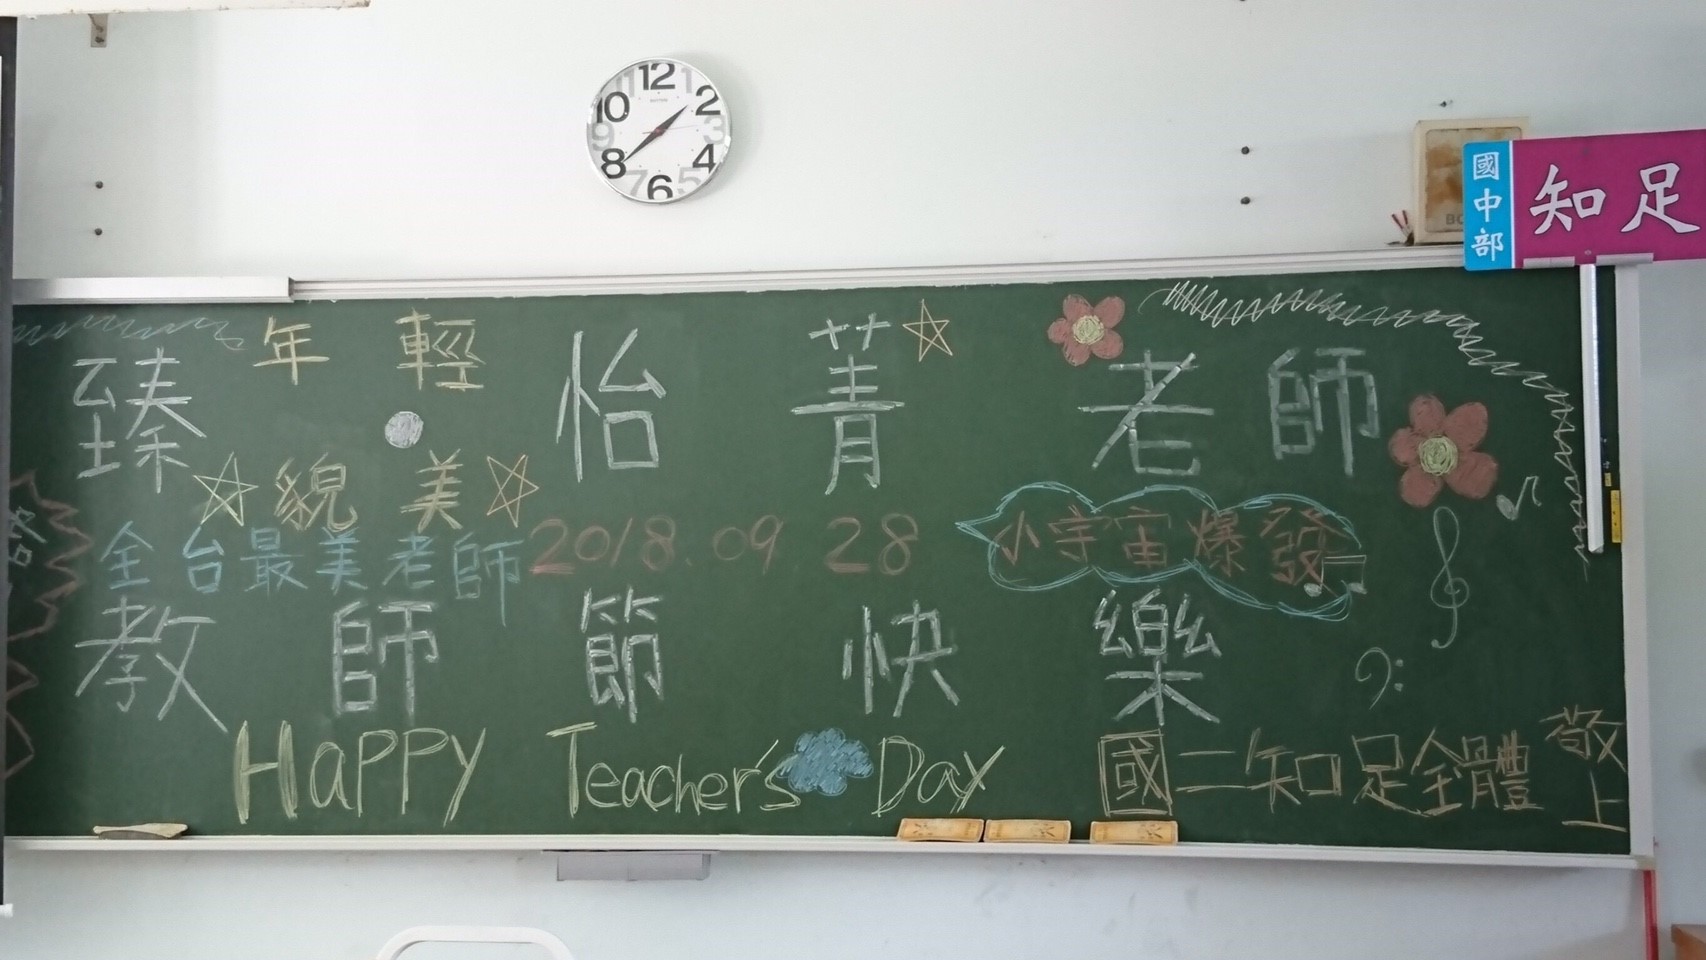 12
1
2
3
4
5
6
7
8
9
10
11
國中部
知足
年輕
臻 怡菁 老師
貌美
全台最美老師
2018.09.28
小宇宙爆發
教師節快樂
Happy Teacher's Day
國二知足全體敬上